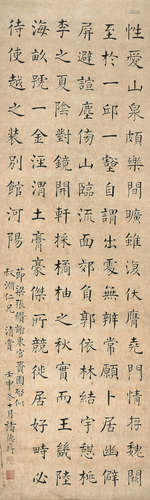 性愛山泉頗樂閒曠雖復伏膺堯門情存魏闕
至於一邱一壑自謂出處無辨常願卜居幽僻
屏避諠塵傍山臨流面郊負郭依林結宇憩桃
李之夏陰對鏡開軒採橘柚之秋實而王畿陸
海畝號一金涇渭土膏豪傑所居好時必
待使越之裝館河陽
節梁張纘謝東宮賚園啟似
仁兄 清賞 壬申冬十月褚德彝